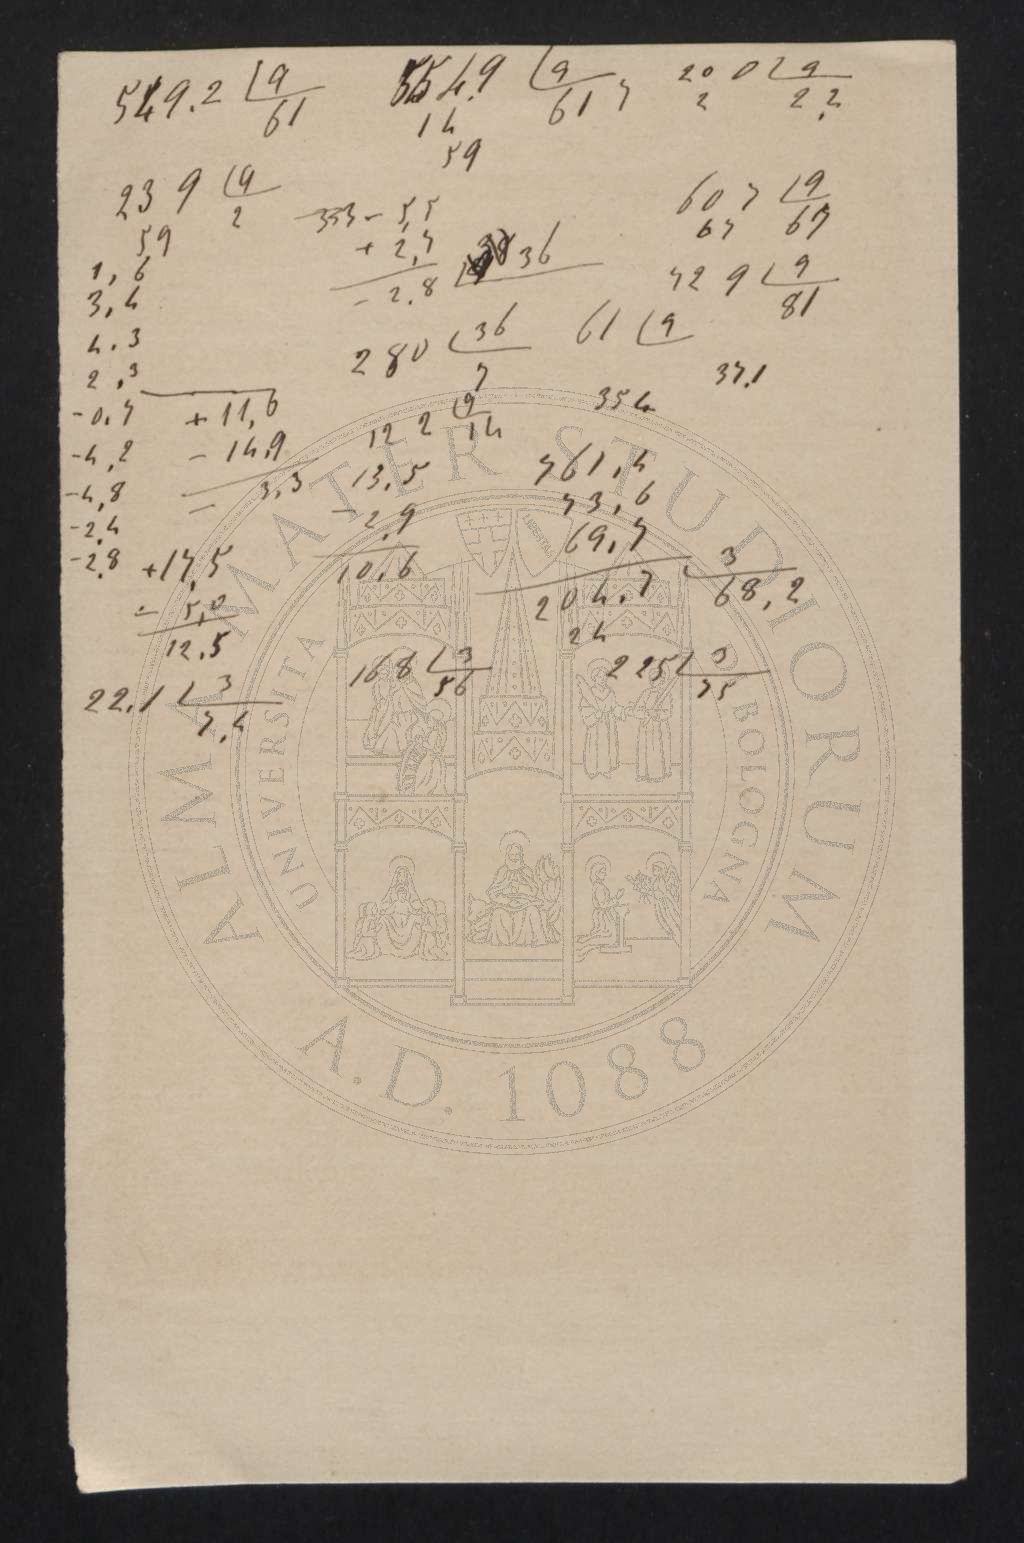 549.2 9 554.9 9 200 9
61 14 617 2 2.2
59
239 9 333 - 5,5 607 9
2 + 2,7 67 67
59 - 2.8 36
1,6 729 9
3,4 81
4.3 280 36 61 9
2,3 7 37.1
-0.7 + 11,6 122 9 354
-4,2 - 14,9 14
-4,8 - 3,3 13,5 761,4
-2,4 - 2.9 73,6
-2.8 + 17,5 10.6 69,7
- 5,0 204.7 3
12.5 24 68,2
22.1 3 168 3 225 3
7,4 56 75
ALMA MATER STUDIORUM
UNIVERSITA DI BOLOGNA
A.D. 1088